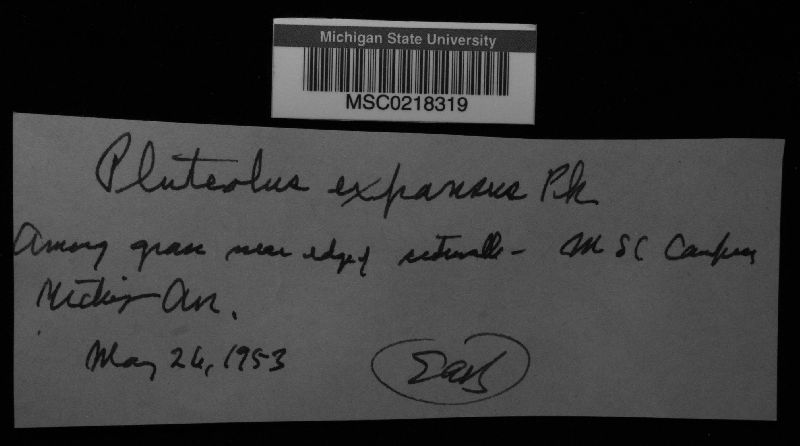 Michigan State University
MSC0218319
Pluteolus expansus Pk
Among grass near edge of sidewalk - MSC Campus
Michigan Av.
May 26, 1953